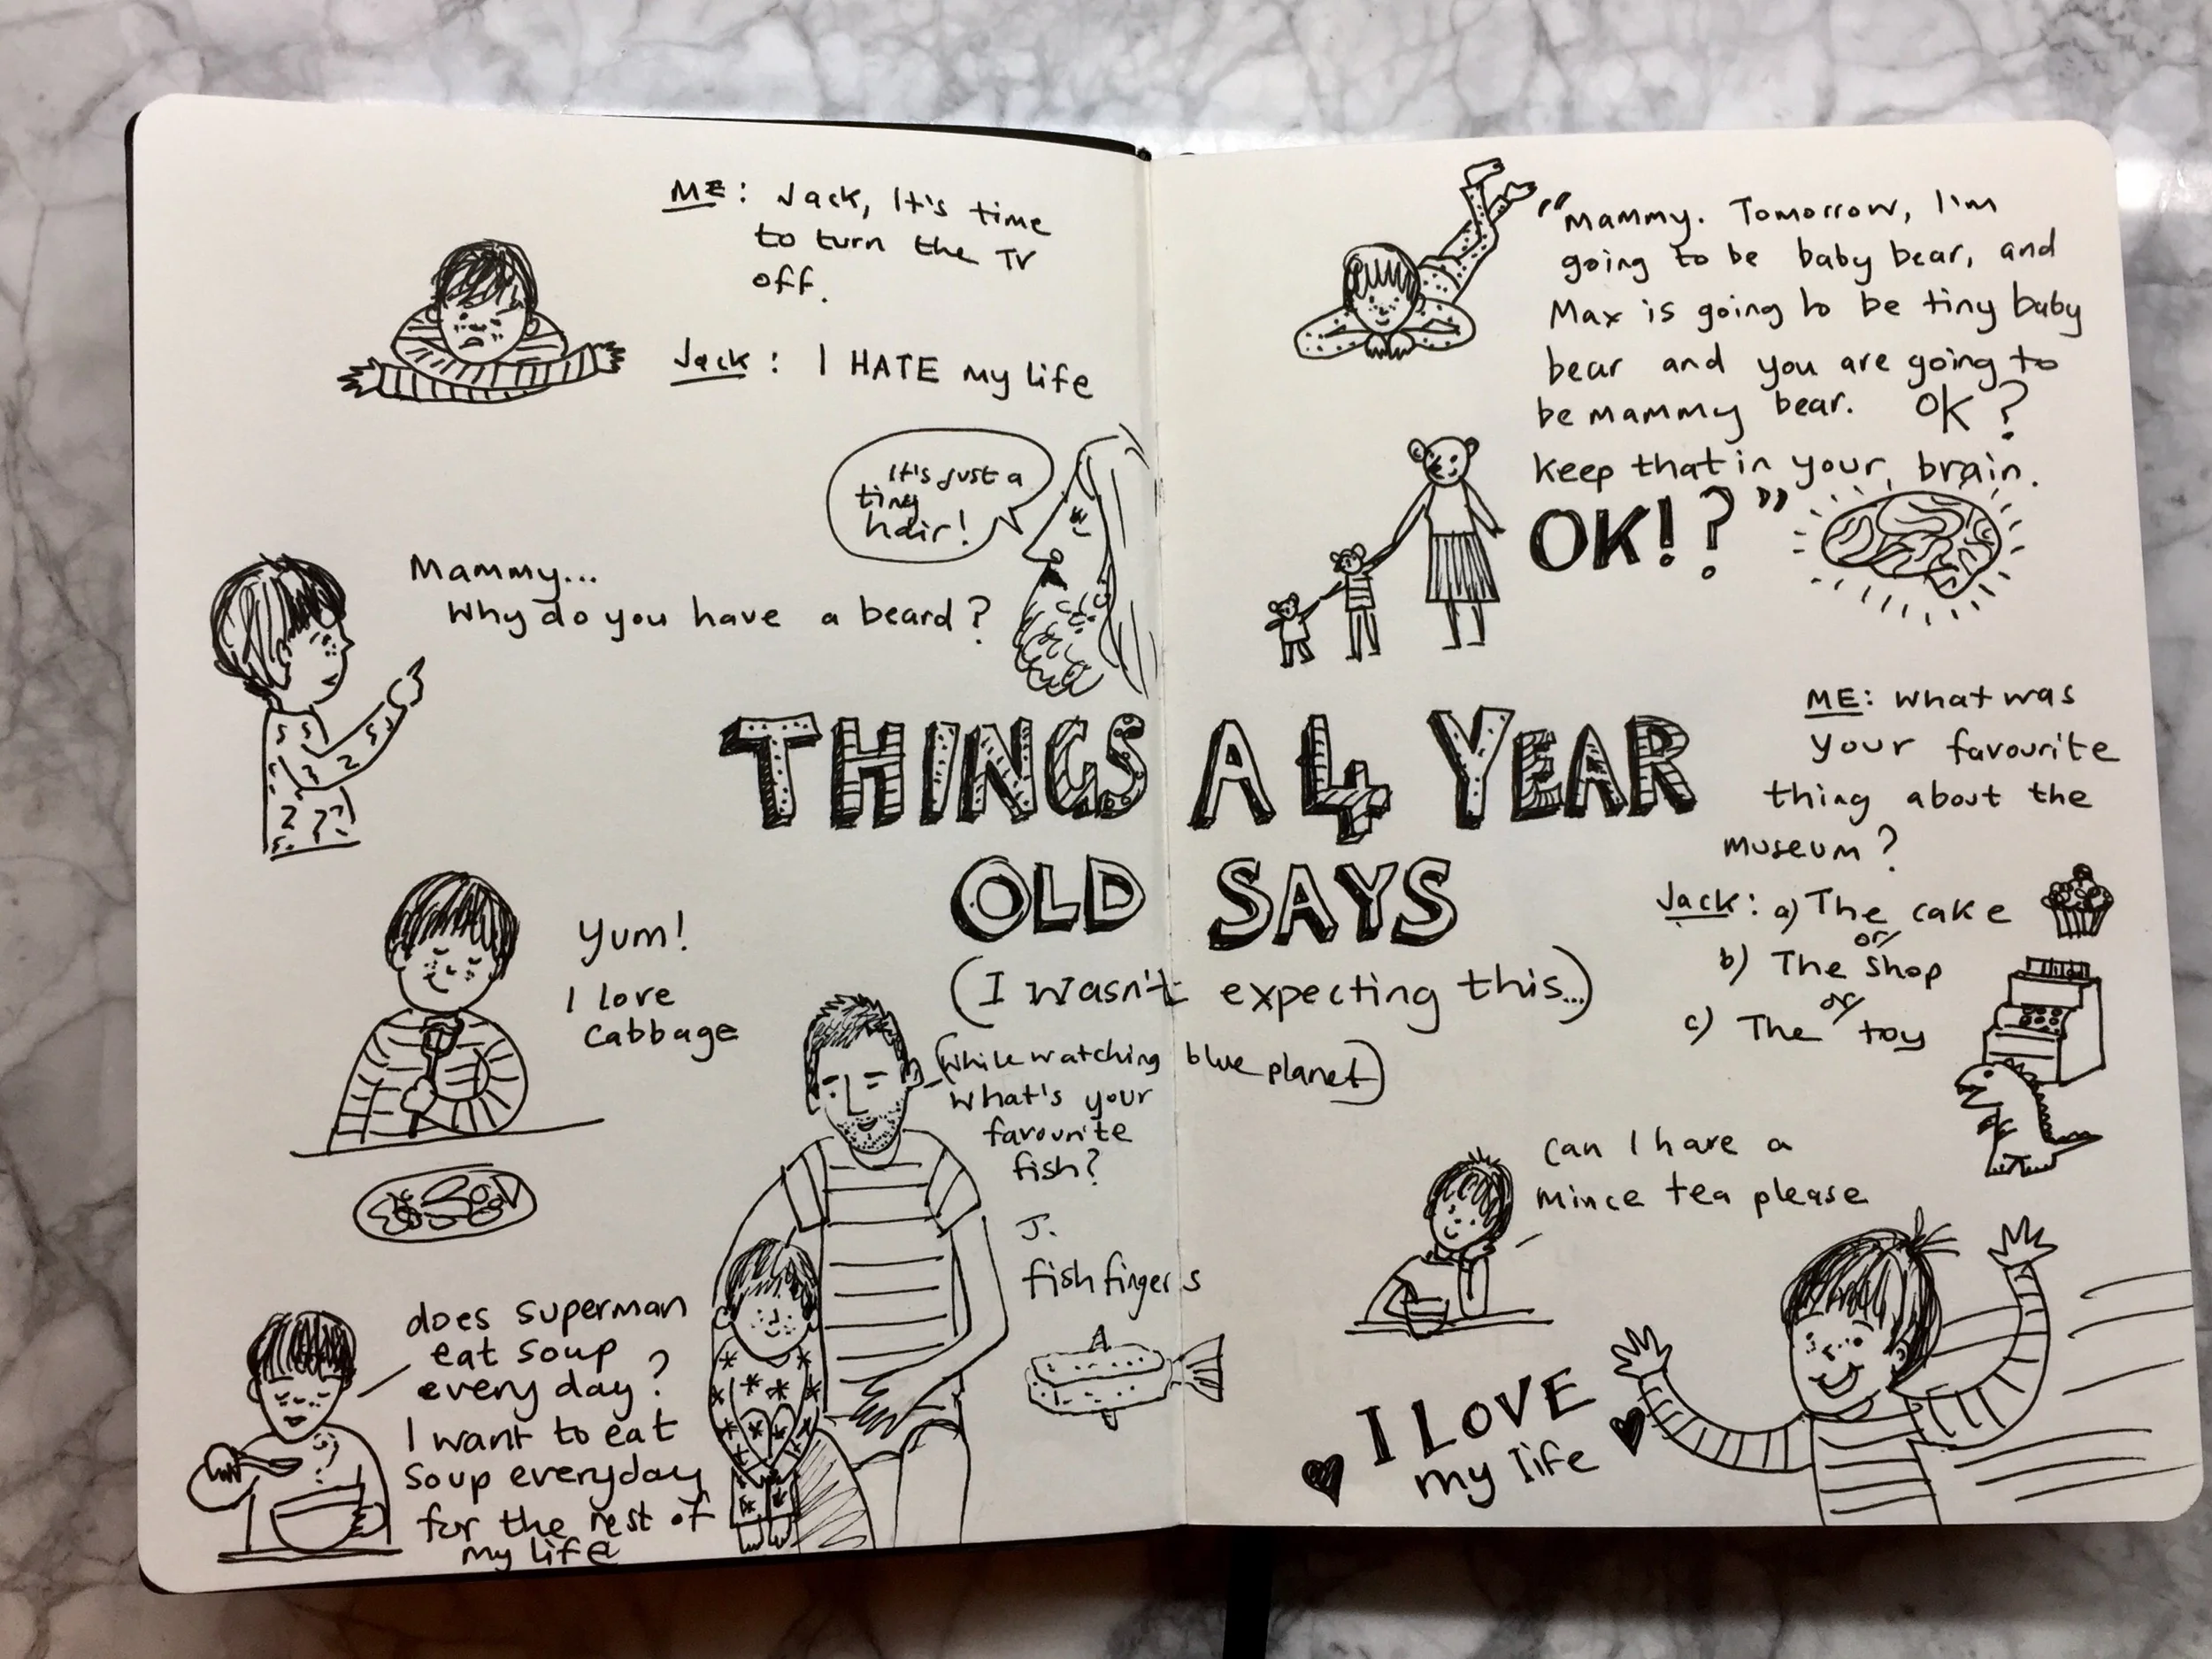 ME: Jack, It's time
to turn the TV
off.
Jack: I HATE my life
It's just a
tiny
hair!
Mammy...
Why do you have a beard?
THINGS A 4 YEAR
OLD SAYS
(I wasn't expecting this...)
Yum!
I love
cabbage
(while watching blue planet)
what's your
favourite
fish?
J.
fish fingers
does superman
eat soup
every day?
I want to eat
soup everyday
for the rest of
my life
"Mammy. Tomorrow, I'm
going to be baby bear, and
Max is going to be tiny baby
bear and you are going to
be mammy bear. OK?
Keep that in your brain.
OK!?"
ME: what was
your favourite
thing about the
museum?
Jack: a) The cake
or
b) The shop
or
c) The toy
can I have a
mince tea please
I LOVE
my life